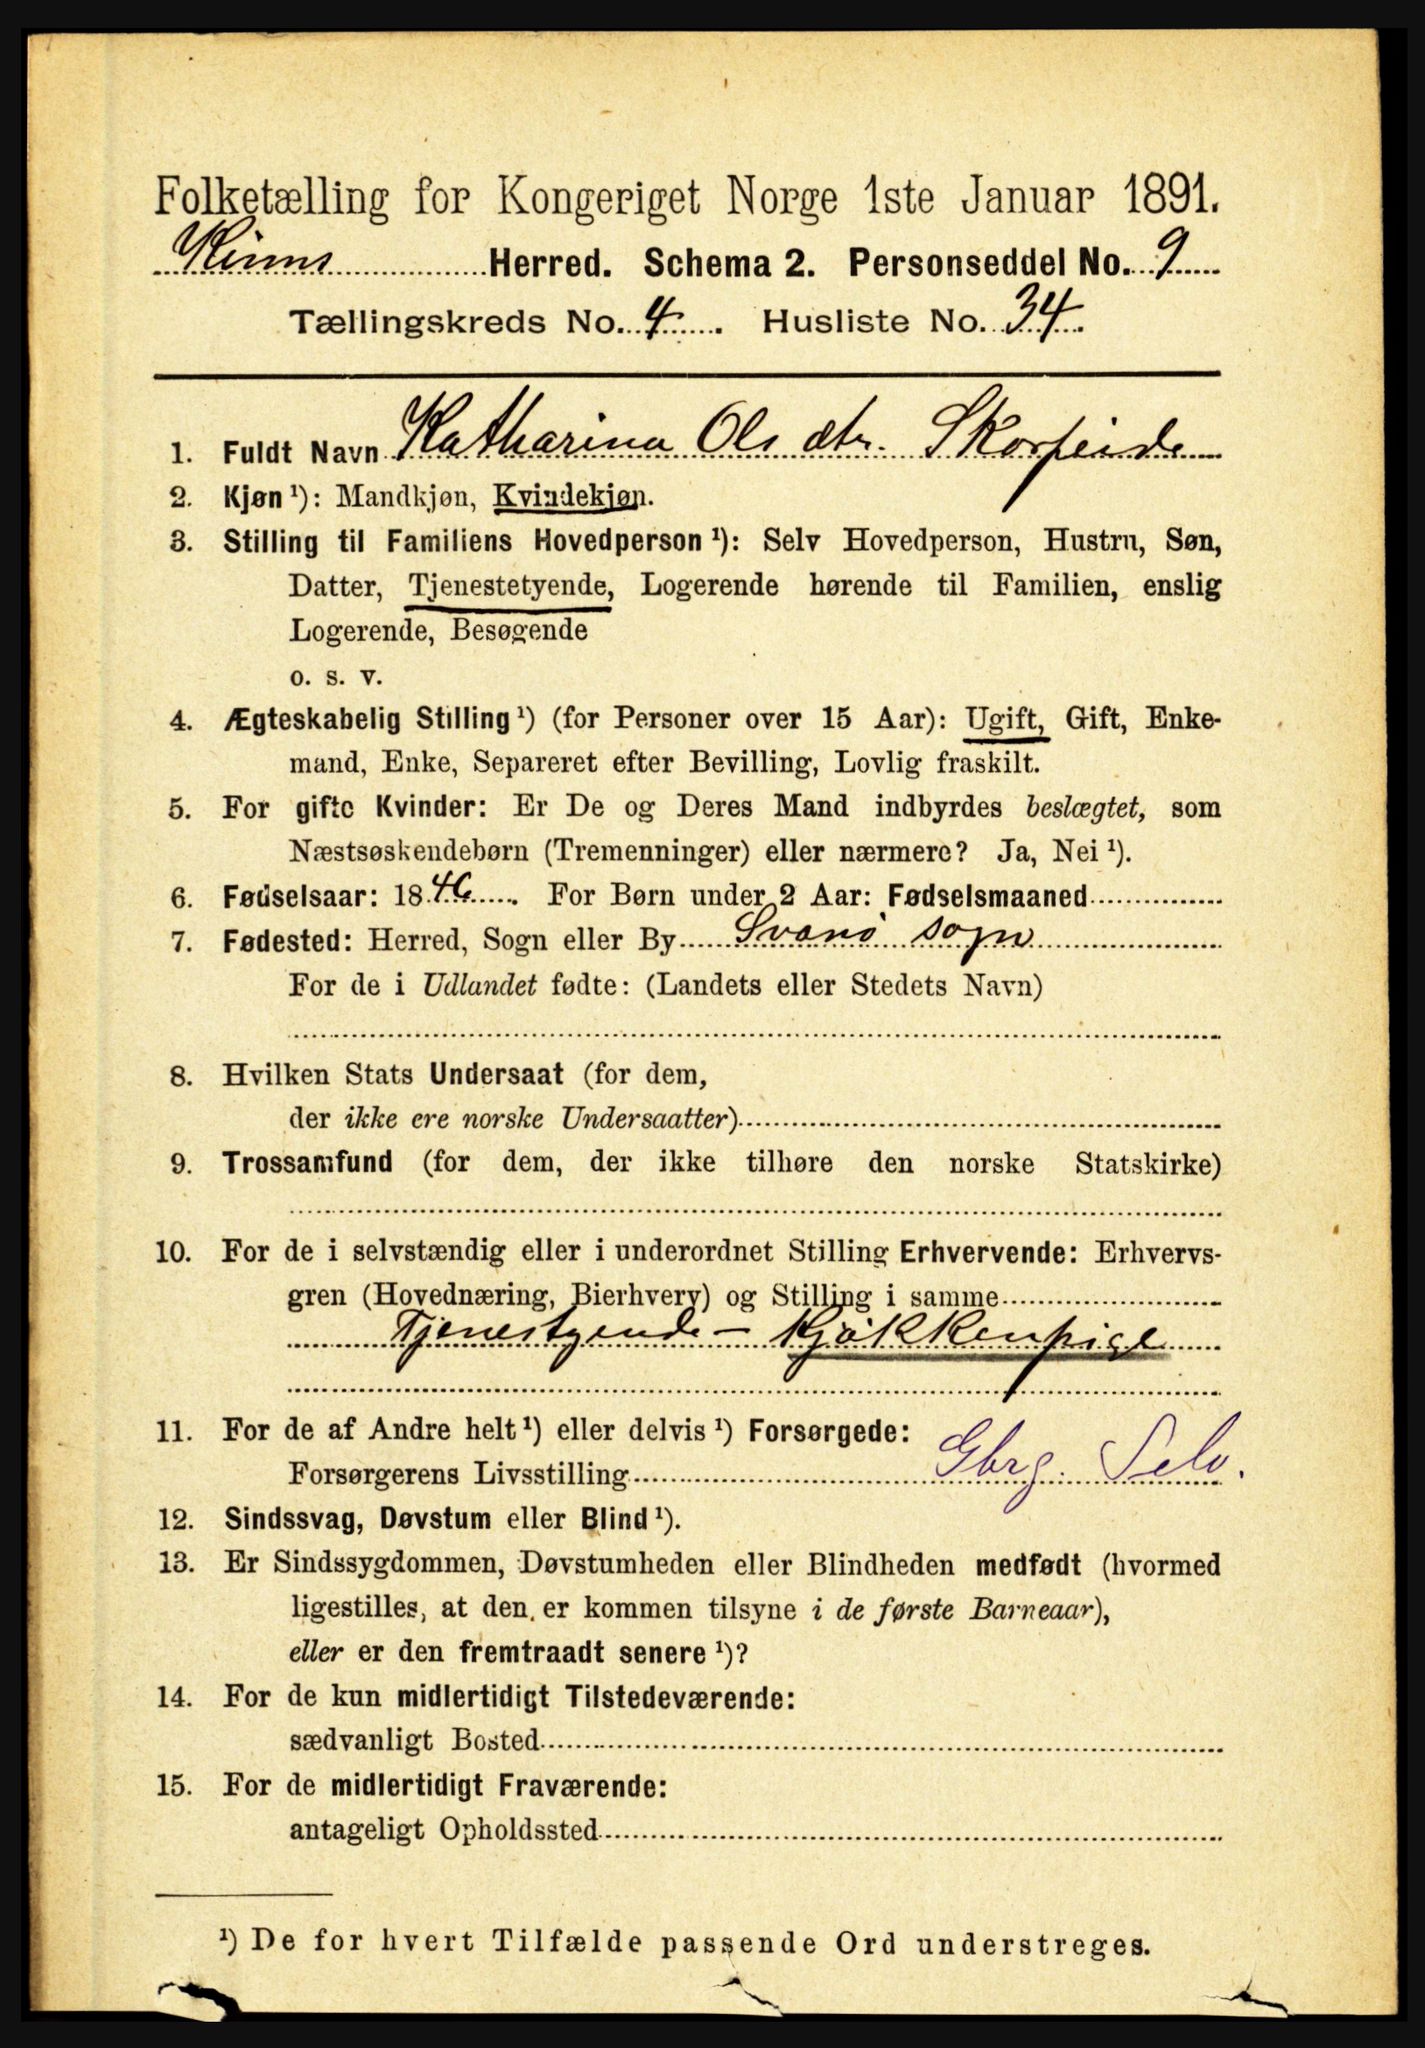 Folketælling for Kongeriget Norge 1ste Januar 1891.
Kinns Herred. Schema 2. Personseddel No. 9
Tællingskreds No. 4. Husliste No. 34.
1. Fuldt Navn Katharina Ols dtr. Skorpeide
2. Kjøn ¹): Mandkjøn, Kvindekjøn.
3. Stilling til Familiens Hovedperson ¹): Selv Hovedperson, Hustru, Søn,
Datter, Tjenestetyende, Logerende hørende til Familien, enslig
Logerende, Besøgende
o. s. v.
4. Ægteskabelig Stilling ¹) (for Personer over 15 Aar): Ugift, Gift, Enke-
mand, Enke, Separeret efter Bevilling, Lovlig fraskilt.
5. For gifte Kvinder: Er De og Deres Mand indbyrdes beslægtet, som
Næstsøskendebørn (Tremenninger) eller nærmere? Ja, Nei ¹).
6. Fødselsaar: 1846. For Børn under 2 Aar: Fødselsmaaned
7. Fødested: Herred, Sogn eller By Svanø sogn
For de i Udlandet fødte: (Landets eller Stedets Navn)
8. Hvilken Stats Undersaat (for dem,
der ikke ere norske Undersaatter)
9. Trossamfund (for dem, der ikke tilhøre den norske Statskirke)
10. For de i selvstændig eller i underordnet Stilling Erhvervende: Erhvervs-
gren (Hovednæring, Bierhverv) og Stilling i samme
Tjenestyende - Kjøkkenpige
11. For de af Andre helt ¹) eller delvis ¹) Forsørgede:
Forsørgerens Livsstilling Gbrg. Selv.
12. Sindssvag, Døvstum eller Blind ¹).
13. Er Sindssygdommen, Døvstumheden eller Blindheden medfødt (hvormed
ligestilles, at den er kommen tilsyne i de første Barneaar),
eller er den fremtraadt senere ¹)?
14. For de kun midlertidigt Tilstedeværende:
sædvanligt Bosted
15. For de midlertidigt Fraværende:
antageligt Opholdssted
¹) De for hvert Tilfælde passende Ord understreges.